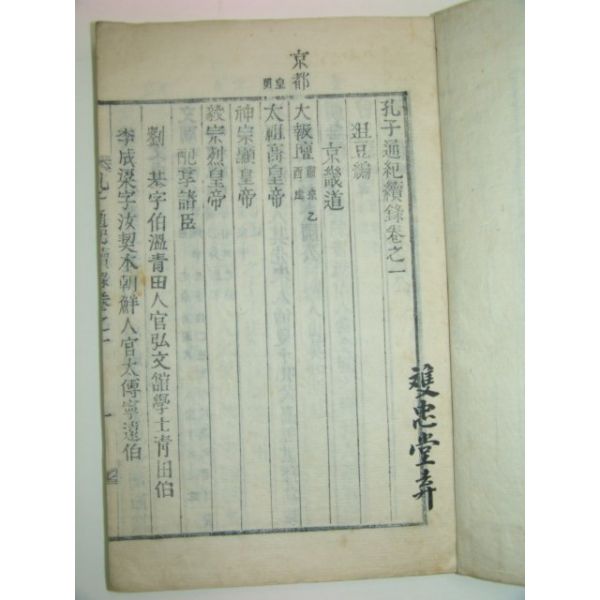 京都
皇明
孔子通紀續錄卷之一
俎豆編
京畿道
大報壇 肅宗乙酉建
太祖高皇帝
神宗顯皇帝
毅宗烈皇帝
配享諸臣
劉基字伯溫青田人官弘文館學士青田伯
李成梁字汝契本朝鮮人官太傅寧遠伯
通紀續錄卷之一
雙忠堂弆